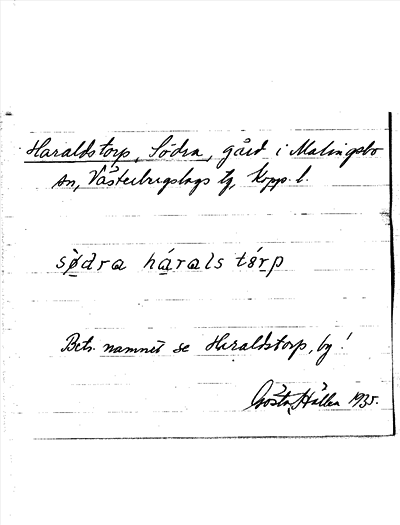 Haraldstorp, Södra, gård i Malingsbo
sn, Västerbergslags tg, Kopp. l.
sö̀dra háralstórp
Betr. namnet se Haraldstorp, by!
Gösta Hallen 1935.